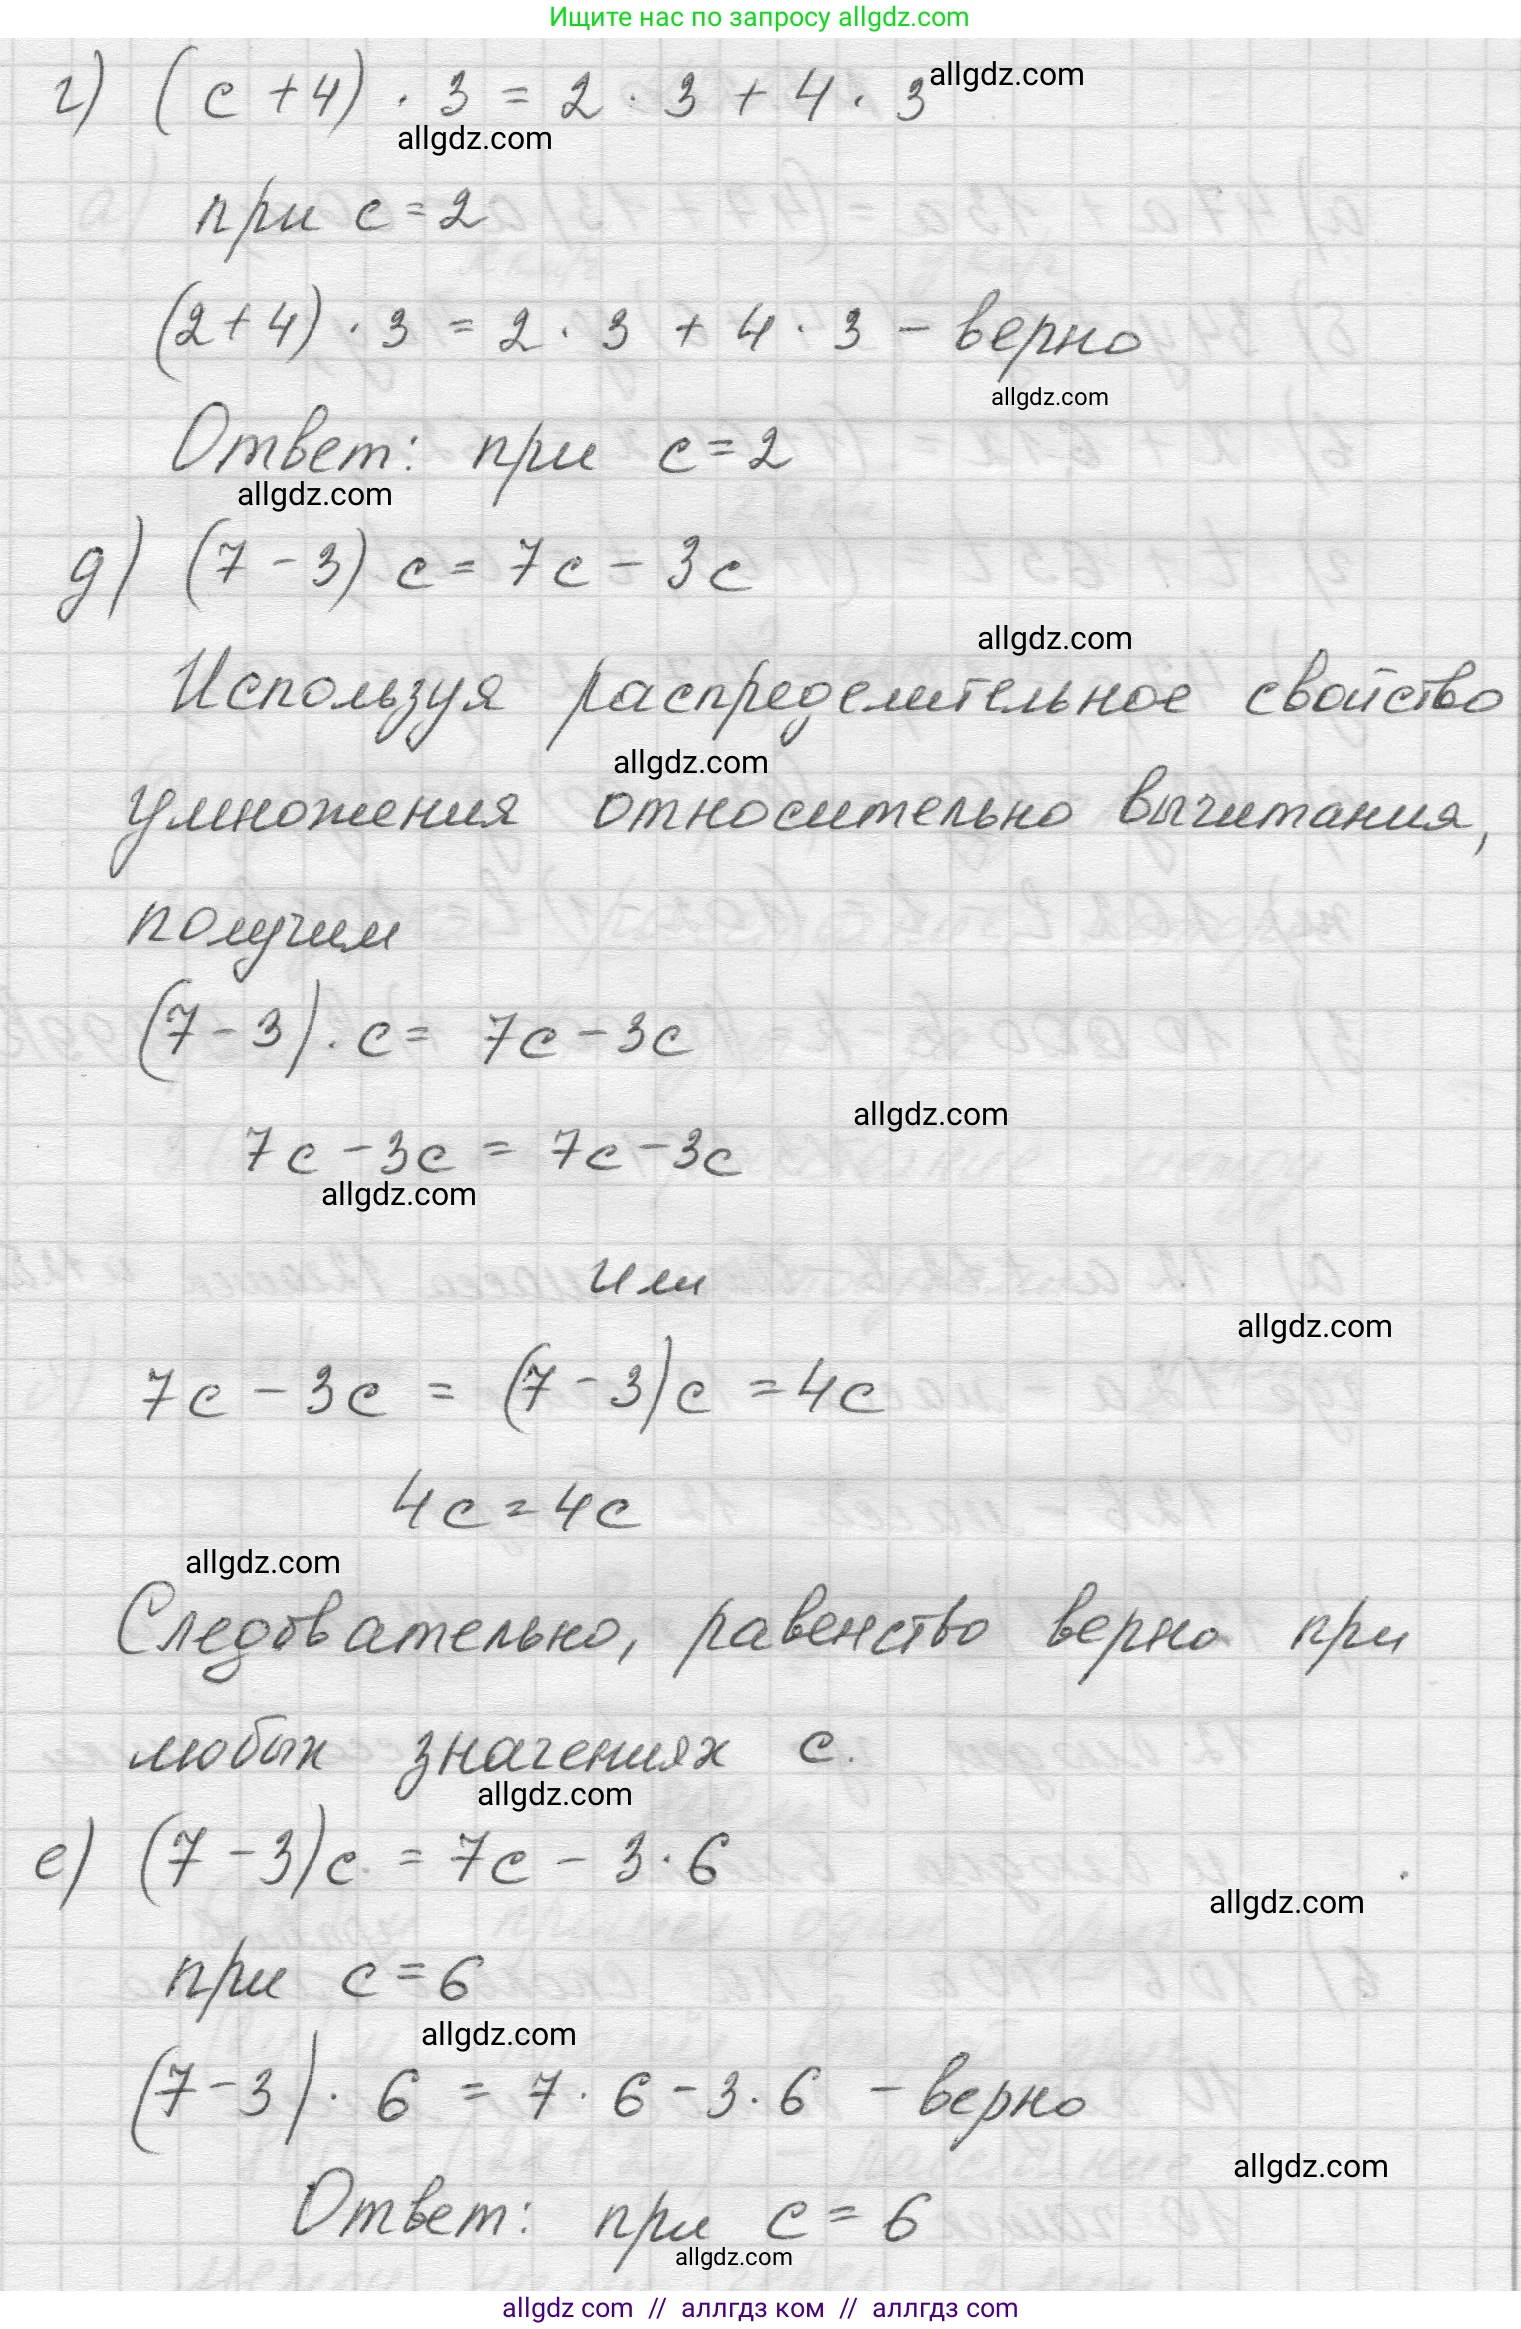 Ищите нас по запросу allgdz.com
г) (с + 4) · 3 = 2 · 3 + 4 · 3 allgdz.com
allgdz.com
при с = 2
(2 + 4) · 3 = 2 · 3 + 4 · 3 – верно
allgdz.com
Ответ: при с = 2
allgdz.com
д) (7 - 3) с = 7с - 3с
allgdz.com
Используя распределительное свойство
allgdz.com
умножения относительно вычитания,
получим
(7 - 3) · с = 7с - 3с
allgdz.com
7с - 3с = 7с - 3с
allgdz.com
или
allgdz.com
7с - 3с = (7 - 3)с = 4с
4с = 4с
allgdz.com
Следовательно, равенство верно при
любых значениях с.
allgdz.com
е) (7 - 3)с = 7с - 3 · 6
allgdz.com
при с = 6
allgdz.com
(7 - 3) · 6 = 7 · 6 - 3 · 6 – верно
allgdz.com
Ответ: при с = 6
allgdz.com
allgdz com // аллгдз ком // аллгдз com